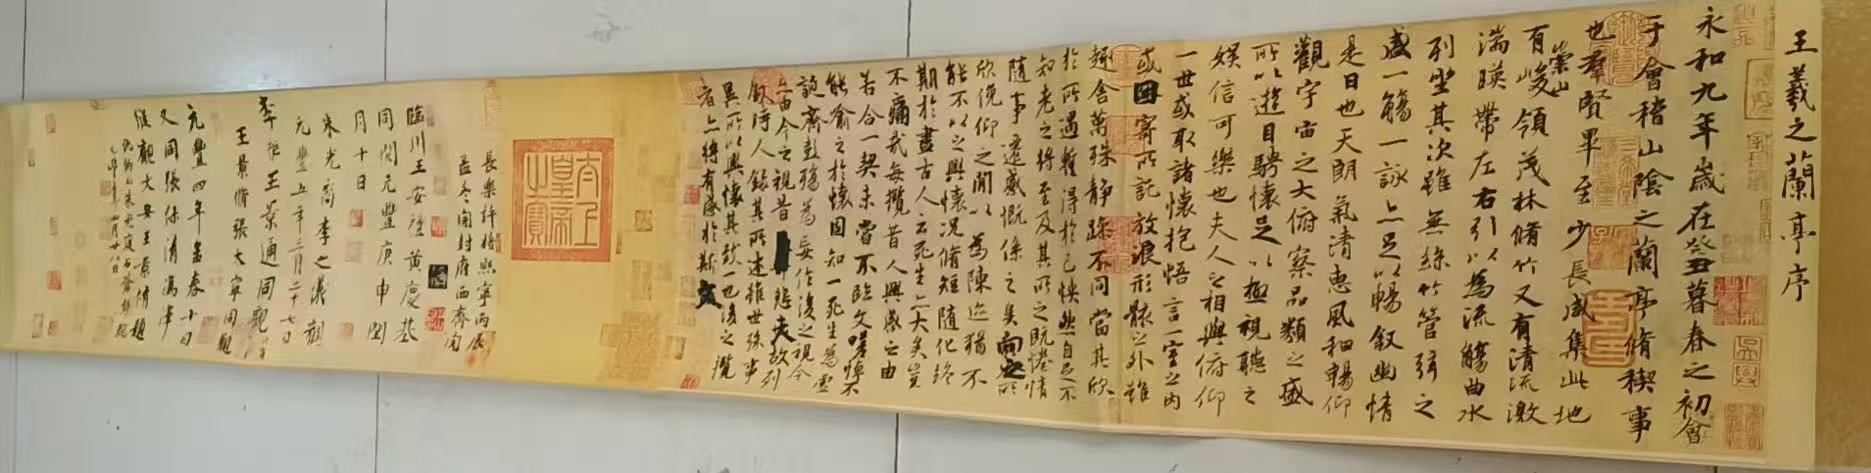 王羲之蘭亭序
永和九年歲在癸丑暮春之初會
于會稽山陰之蘭亭脩稧事
也羣賢畢至少長咸集此地
有崇山峻領茂林脩竹又有清流激
湍暎帶左右引以為流觴曲水
列坐其次雖無絲竹管弦之
盛一觴一詠亦足以暢叙幽情
是日也天朗氣清惠風和暢仰
觀宇宙之大俯察品類之盛
所以遊目騁懷足以極視聽之
娛信可樂也夫人之相與俯仰
一世或取諸懷抱悟言一室之內
或因寄所託放浪形骸之外雖
趣舍萬殊靜躁不同當其欣
於所遇暫得於己怏然自足不
知老之將至及其所之既惓情
隨事遷感慨係之矣向之所
欣俛仰之間以為陳迹猶不
能不以之興懷況脩短隨化終
期於盡古人云死生亦大矣豈
不痛哉每攬昔人興感之由
若合一契未嘗不臨文嗟悼不
能喻之於懷固知一死生為虛
誕齊彭殤為妄作後之視今
亦由今之視昔悲夫故列
敘時人錄其所述雖世殊事
異所以興懷其致一也後之攬
者亦將有感於斯文
太上皇帝之寶
長樂許將熙寧丙辰
孟冬開封府西齋閱
臨川王安禮黃慶基
同閱元豐庚申閏
月十日
朱光裔李之儀觀
元豐五年三月二十七日
王景脩張大寧同觀
元豐四年孟春十日
又同張保清馮澤
縱觀大安王景脩題